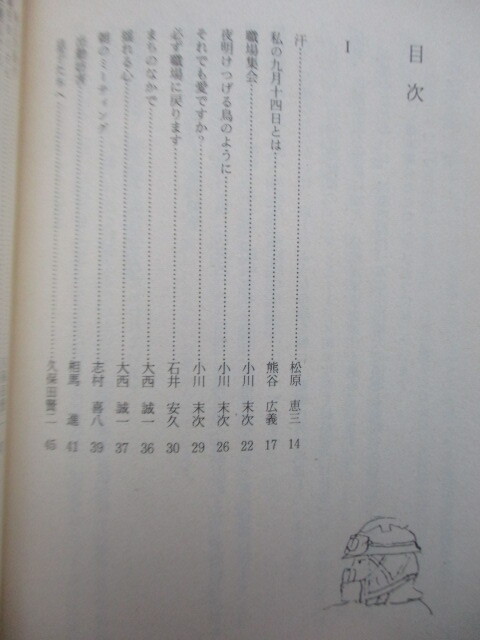 目次
I
汗……松原 恵三 14
私の九月十四日とは……熊谷 広義 17
職場集会……小川 末次 22
夜明けつげる鳥のように……小川 末次 26
それでも愛ですか？……小川 末次 29
必ず職場に戻ります……石井 安久 30
まちのなかで……大西 誠一 36
揺れる心……大西 誠一 37
朝のミーティング……志村 喜八 39
……相馬 進 41
……久保田賢二 45